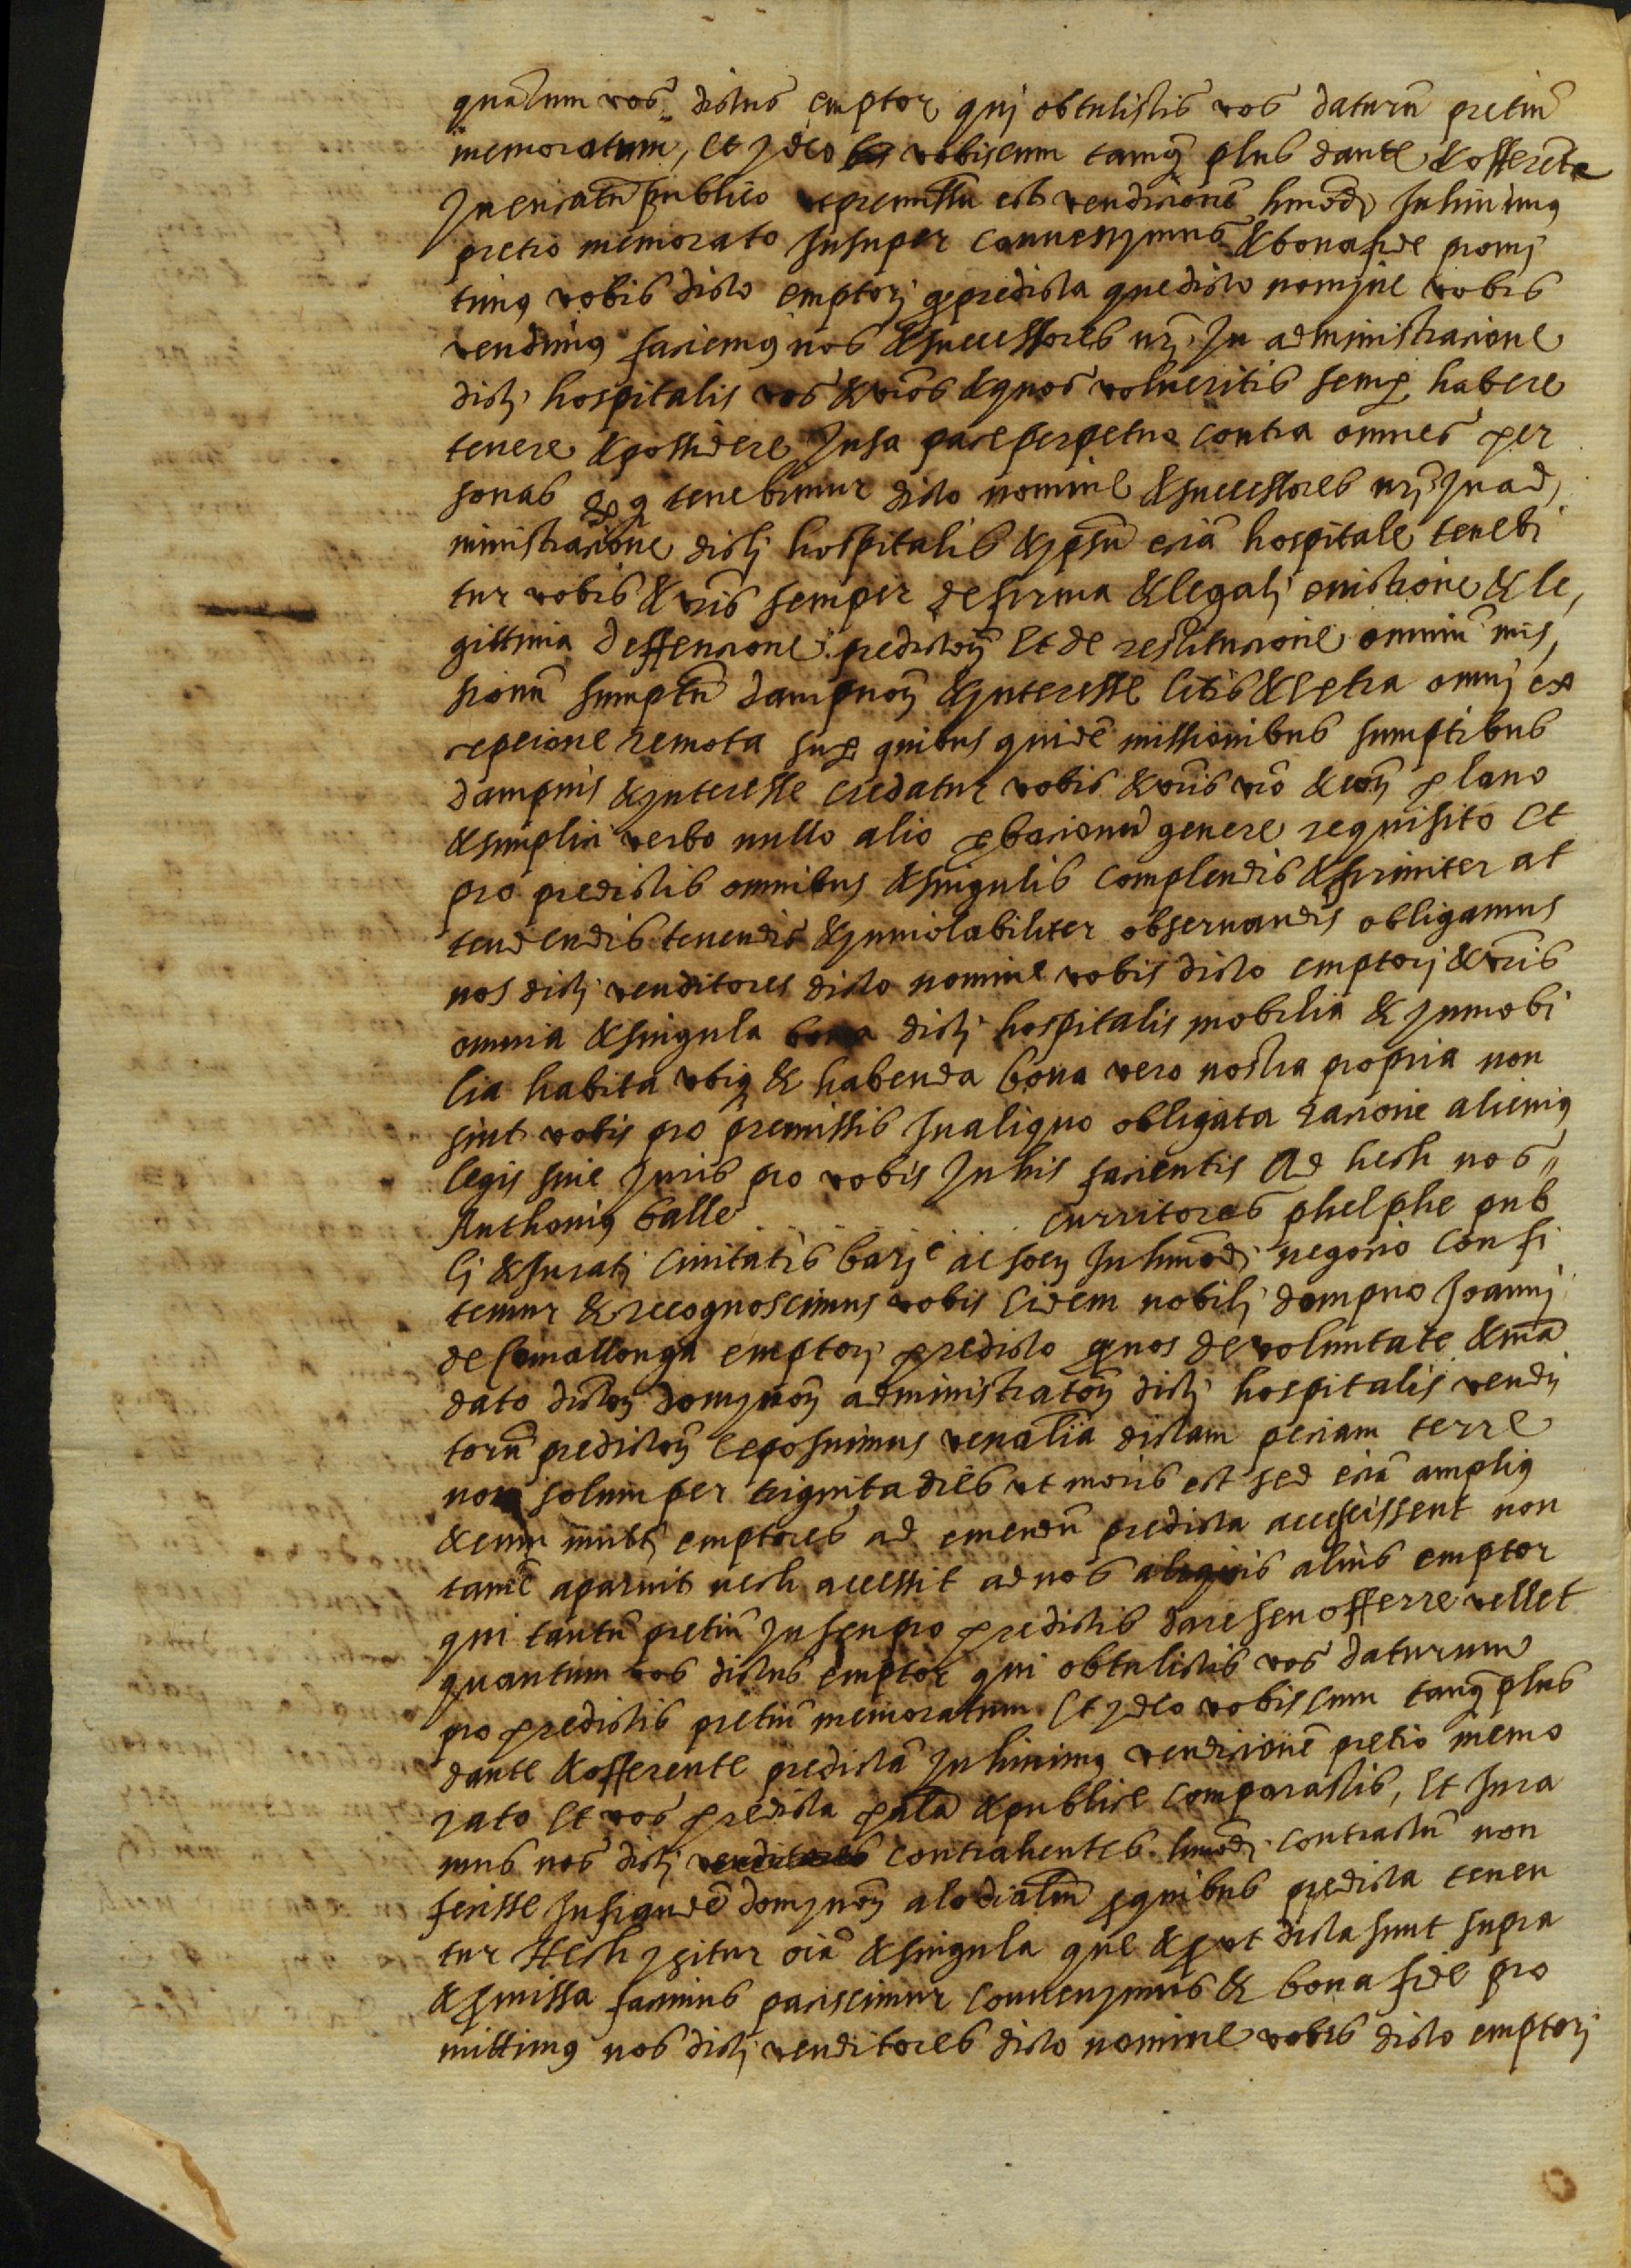 quãtum vos dictus emptor qui obtulistis vos daturũ pretiũ
memoratum, et ydeo vobiscum tamq̃ plus dante & offerẽte
Inencatũ publico vt premissũ est vendicionẽ hmõdi Inhiuimus
pretio memorato Insuper conuenymus & bona fide promi
timus vobis dicto emptori q̃ predicta que dicto nomine vobis
vendimus faciemus nos & successores nrĩ In administracione
dicti hospitalis vos & vrõs & quos volueritis semp habere
tenere & possidere Insa pace perpetuo contra omnes per
sonas & q tenebimur dicto nomine & successores nrĩ In ad,
ministracione dicti hospitalis & ypsũ eciã hospitale tenebi
tur vobis & vrĩs semper de firma & legali euictione & le,
gittima deffencione predictoꝝ Et de restitucione omniũ mis,
sionũ sumptũ dampnoꝝ & ynteresse litis & extra omni ex
cepcione remota sup quibus quidẽ missionibus sumptibus
dampnis & ynteresse credatur vobis & vrĩs vrõ & eoꝝ plano
& simplici verbo nullo alio ꝓbacionũ genere requisito Et
pro predictis omnibus & singulis complendis & firmiter at
tendendis tenendis & ynuiolabiliter obseruandis obligamus
nos dicti venditores dicto nomine vobis dicto emptori & vrĩs
omnia & singula bona dicti hospitalis mobilia & ynmobi
lia habita vbiq & habenda bona vero nostra propria non
sint vobis pro premissis In aliquo obligata racione alicuius
legis siue Juris pro vobis In his facientis Ad hech nos
Anthonius balle . . . . . . . curritores phelphe pub
lici & Jurati Ciuitatis barĩe ac socy In hmõdi negocio confi
temur & recognoscimus vobis eidem nobili dompno Joanni
de semallonga emptori predicto q nos de voluntate & mã
dato dictoꝝ domynoꝝ administratoꝝ dicti hospitalis vendi
torũ predictoꝝ exposuimus venaliã dictam peciam terre
non solum per triginta dies vt moris est sed eciã amplius
& cum multi emptores ad emendũ predicta accessissent non
tamẽ aparuit nech accessit ad nos aliquis alius emptor
qui tantũ pretiũ In seu pro predictis dare seu offerre vellet
quantum vos dictus emptor qui obtulistis vos daturum
pro predictis pretiũ memoratum Et ydeo vobiscum tanq plus
dante & offerente predictã Inhiuimus vendicionẽ pretio memo
rato Et vos predicta palã & publice comparastis, Et Jura
mus nos dicti contrahentes hmõdi contractũ non
fecisse In fraudẽ domynoꝝ alodialiũ ꝓ quibus predicta tenen
tur Hech ygitur oiã & singula que & ꝓut dicta sunt supra
& ꝓmissa facimus paciscimur conuenymus & bona fide pro
mittimus nos dicti venditores dicto nomine vobis dicto emptori